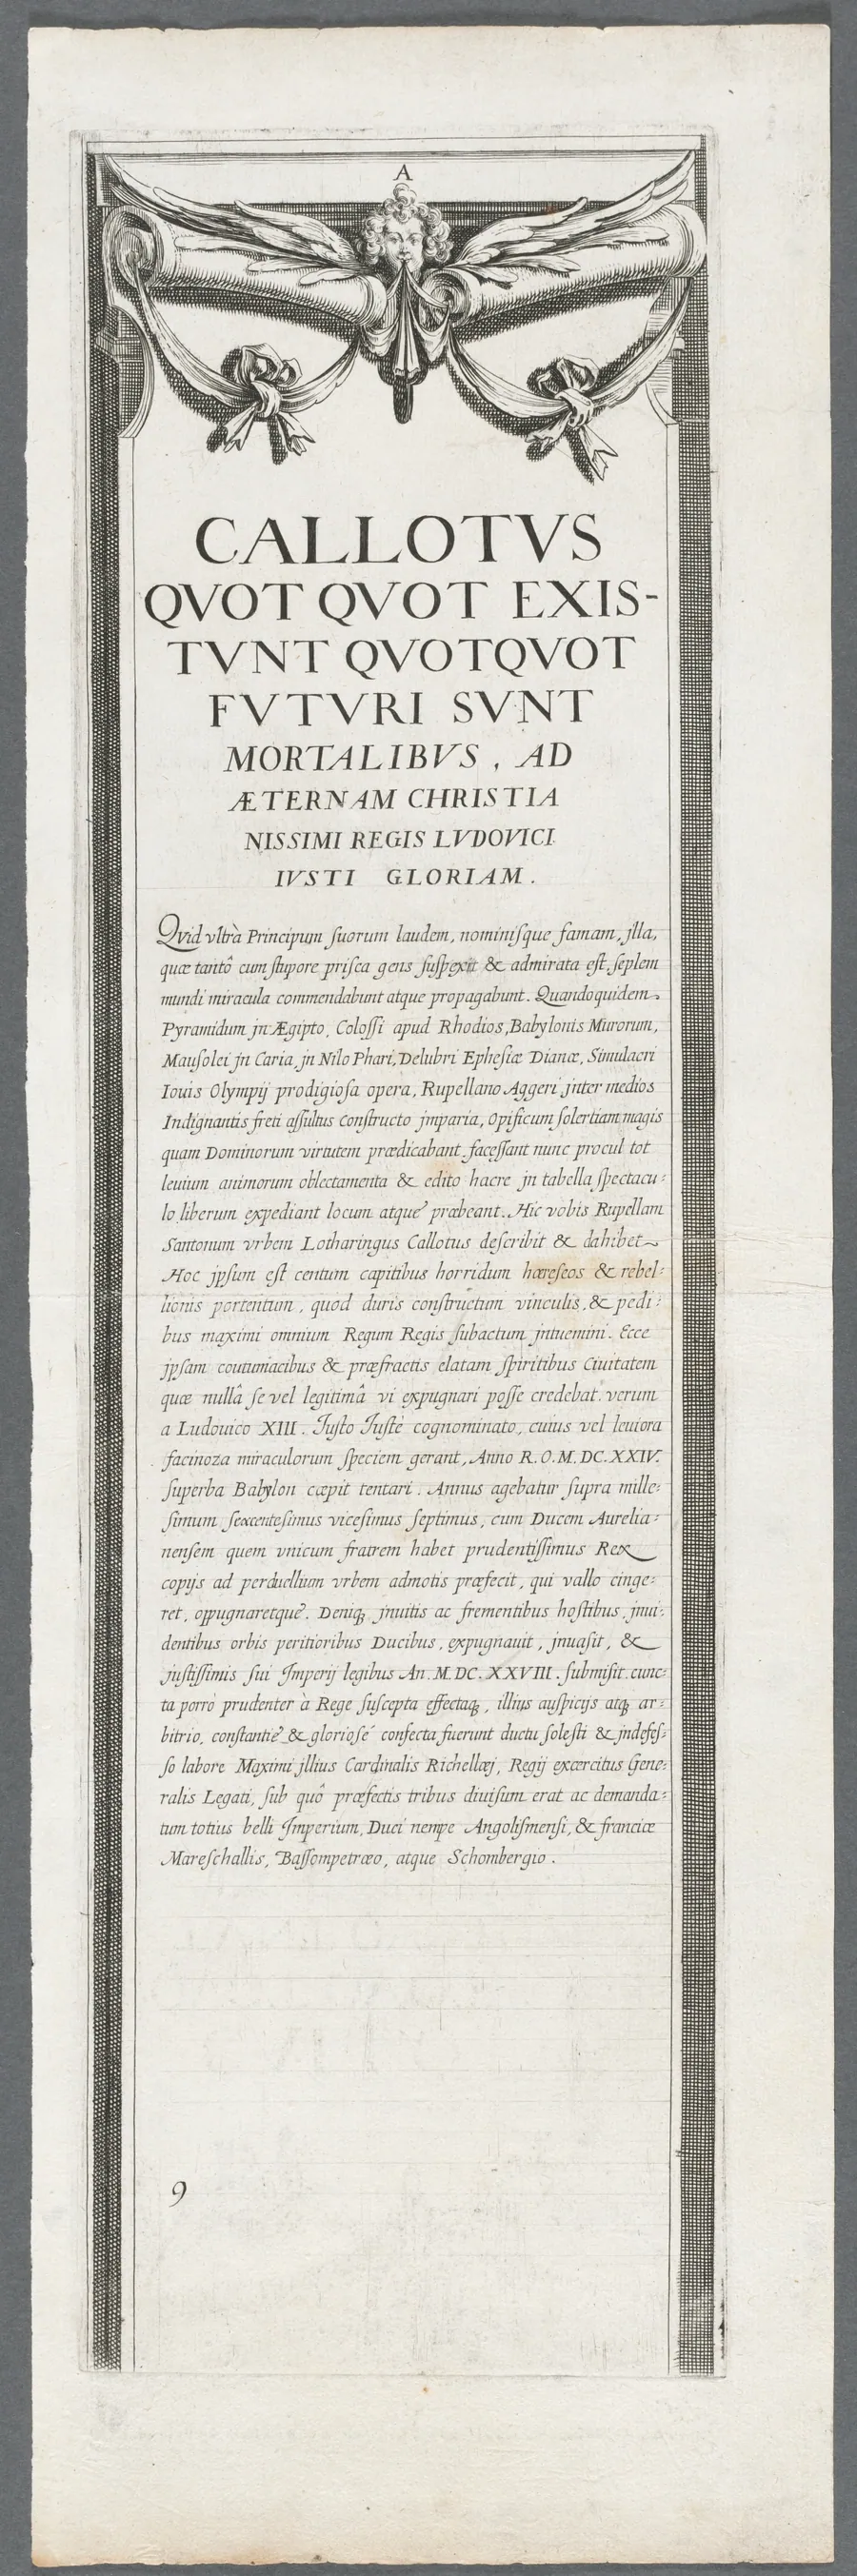 A
CALLOTVS
QVOT QVOT EXIS-
TVNT QVOTQVOT
FVTVRI SVNT
MORTALIBVS, AD
ÆTERNAM CHRISTIA
NISSIMI REGIS LVDOVICI
IVSTI GLORIAM.
Qvid vltrà Principum suorum laudem, nominisque famam, jlla,
quæ tantô cum stupore prisca gens suspexit & admirata est, septem
mundi miracula commendabunt atque propagabunt. Quandoquidem
Pyramidum jn Ægipto, Colossi apud Rhodios, Babylonis Murorum,
Mausolei jn Caria, jn Nilo Phari, Delubri Ephesiæ Dianæ, Simulacri
Iouis Olympij prodigiosa opera, Rupellano Aggeri jnter medios
Indignantis freti assultus constructo jmparia, Opificum solertiam magis
quam Dominorum virtutem prædicabant. facessant nunc procul tot
leuium animorum oblectamenta & edito hacre jn tabella spectacu-
lo liberum expediant locum atque præbeant. Hic vobis Rupellam
Santonum vrbem Lotharingus Callotus describit & dahibet
Hoc jpsum est centum capitibus horridum hæreseos & rebel-
lionis portentum, quod duris constructum vinculis, & pedi-
bus maximi omnium Regum Regis subactum jntuemini. Ecce
jpsam coutumacibus & præfractis elatam spiritibus Ciuitatem
quæ nullâ se vel legitimâ vi expugnari posse credebat. verum
a Ludouico XIII. Justo Justè cognominato, cuius vel leuiora
facinoza miraculorum speciem gerant, Anno R. O. M. DC. XXIV.
superba Babylon cæpit tentari. Annus agebatur supra mille-
simum, sexcentesimus vicesimus septimus, cum Ducem Aurelia-
nensem quem vnicum fratrem habet prudentissimus Rex
copijs ad perduellium vrbem admotis præfecit, qui vallo cinge-
ret, oppugnaretque. Deniq, jnuitis ac frementibus hostibus, jnui-
dentibus orbis peritioribus Ducibus, expugnauit, jnuasit, &
justissimis sui Jmperij legibus An. M. DC. XXVIII. submisit. cunc-
ta porro prudenter à Rege suscepta effectaq, illius auspicijs atq, ar-
bitrio, constantie & gloriosé confecta fuerunt ductu solesti & jndefes-
so labore Maximi jllius Cardinalis Richellæj, Regij exærcitus Gene-
ralis Legati, sub quô præfectis tribus diuisum erat ac demanda-
tum totius belli Jmperium, Duci nempe Angolismensi, & franciæ
Mareschallis, Bassompetræo, atque Schombergio.
9